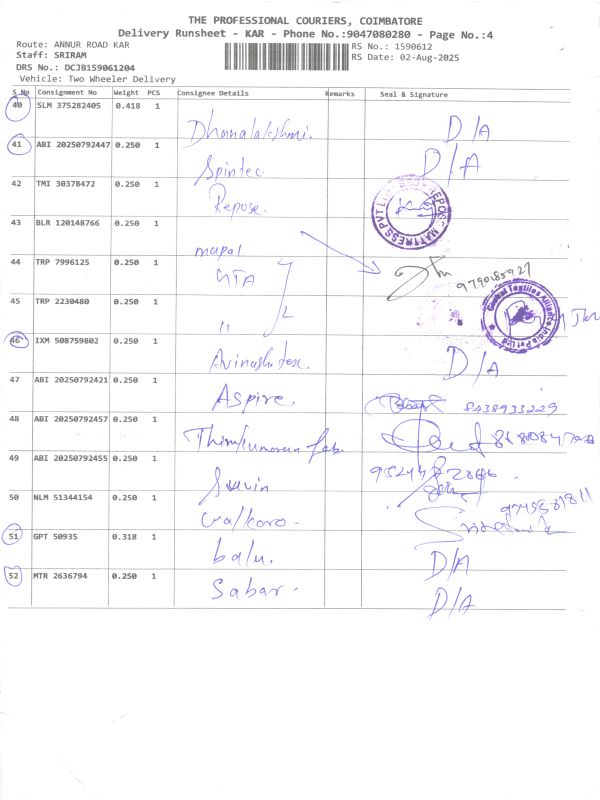 THE PROFESSIONAL COURIERS, COIMBATORE
Delivery Runsheet - KAR - Phone No.:9047080280 - Page No.:4
Route: ANNUR ROAD KAR
RS No.: 1590612
Staff: SRIRAM
RS Date: 02-Aug-2025
DRS No.: DCJB159061204
Vehicle: Two Wheeler Delivery
S No Consignment No Weight PCS Consignee Details Remarks Seal & Signature
40 SLM 375282405 0.418 1 Dhanalakshmi. D/A
41 ABI 20250792447 0.250 1 Spintec D/A
42 TMI 30378472 0.250 1 Repose. REPOSE MATTRESS PVT LTD
43 BLR 120148766 0.250 1 mapal
44 TRP 7996125 0.250 1 GTA 9790185927
45 TRP 2230480 0.250 1 " 2 Global Textiles Alliance India Pvt Ltd
46 IXM 508759802 0.250 1 Avinashitex. D/A
47 ABI 20250792421 0.250 1 Aspire. 8438933229
48 ABI 20250792457 0.250 1
49 ABI 20250792455 0.250 1
50 NLM 51344154 0.250 1
51 GPT 50935 0.318 1 balu. D/A
52 MTR 2636794 0.250 1 Sabar. D/A